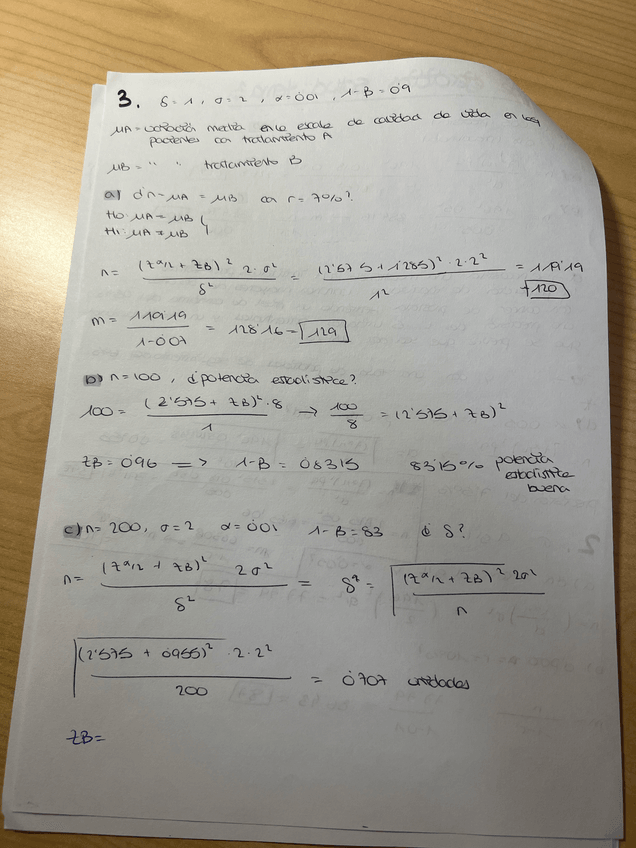 3. δ=1, σ=2, α=0'01, 1-β=0'9
μA = variación media en la escala de calidad de vida en los
pacientes con tratamiento A
μB = " " tratamiento B
a) ¿n-μA = μB con r=7%?
H0: μA = μB
H1: μA = μB
n = (Zα/2 + ZB)² 2·σ² / δ² = (2'575+1'285)²·2·2² / 1² = 119'19
→ 120
m = 119'19 / 1-0'07 = 128'16 = 129
b) n=100, ¿potencia estadística?
100 = (2'575 + ZB)²·8 / 1 → 100/8 = (2'575 + ZB)²
ZB = 0'96 => 1-B = 0'8315 83'15% potencia
estadística
buena
c) n=200, σ=2 α=0'01 1-B=83 ¿δ?
n = (Zα/2 + ZB)² 2σ² / δ² = δ² = √(Zα/2 + ZB)² 2σ² / n
√(2'575 + 0'955)² · 2·2² / 200 = 0'707 unidades
ZB=